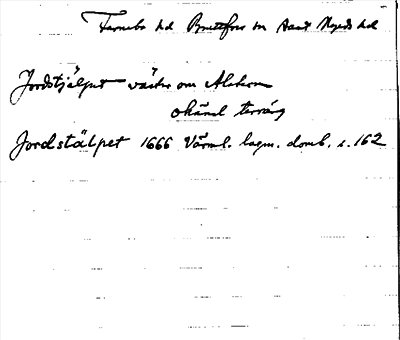 Färnebo hd Brattfors sn samt Nyeds hd
Jordstjälpet väster om Alstern
okänd terräng
Jordstälpet 1666 Värml. lagm. domb. s. 162